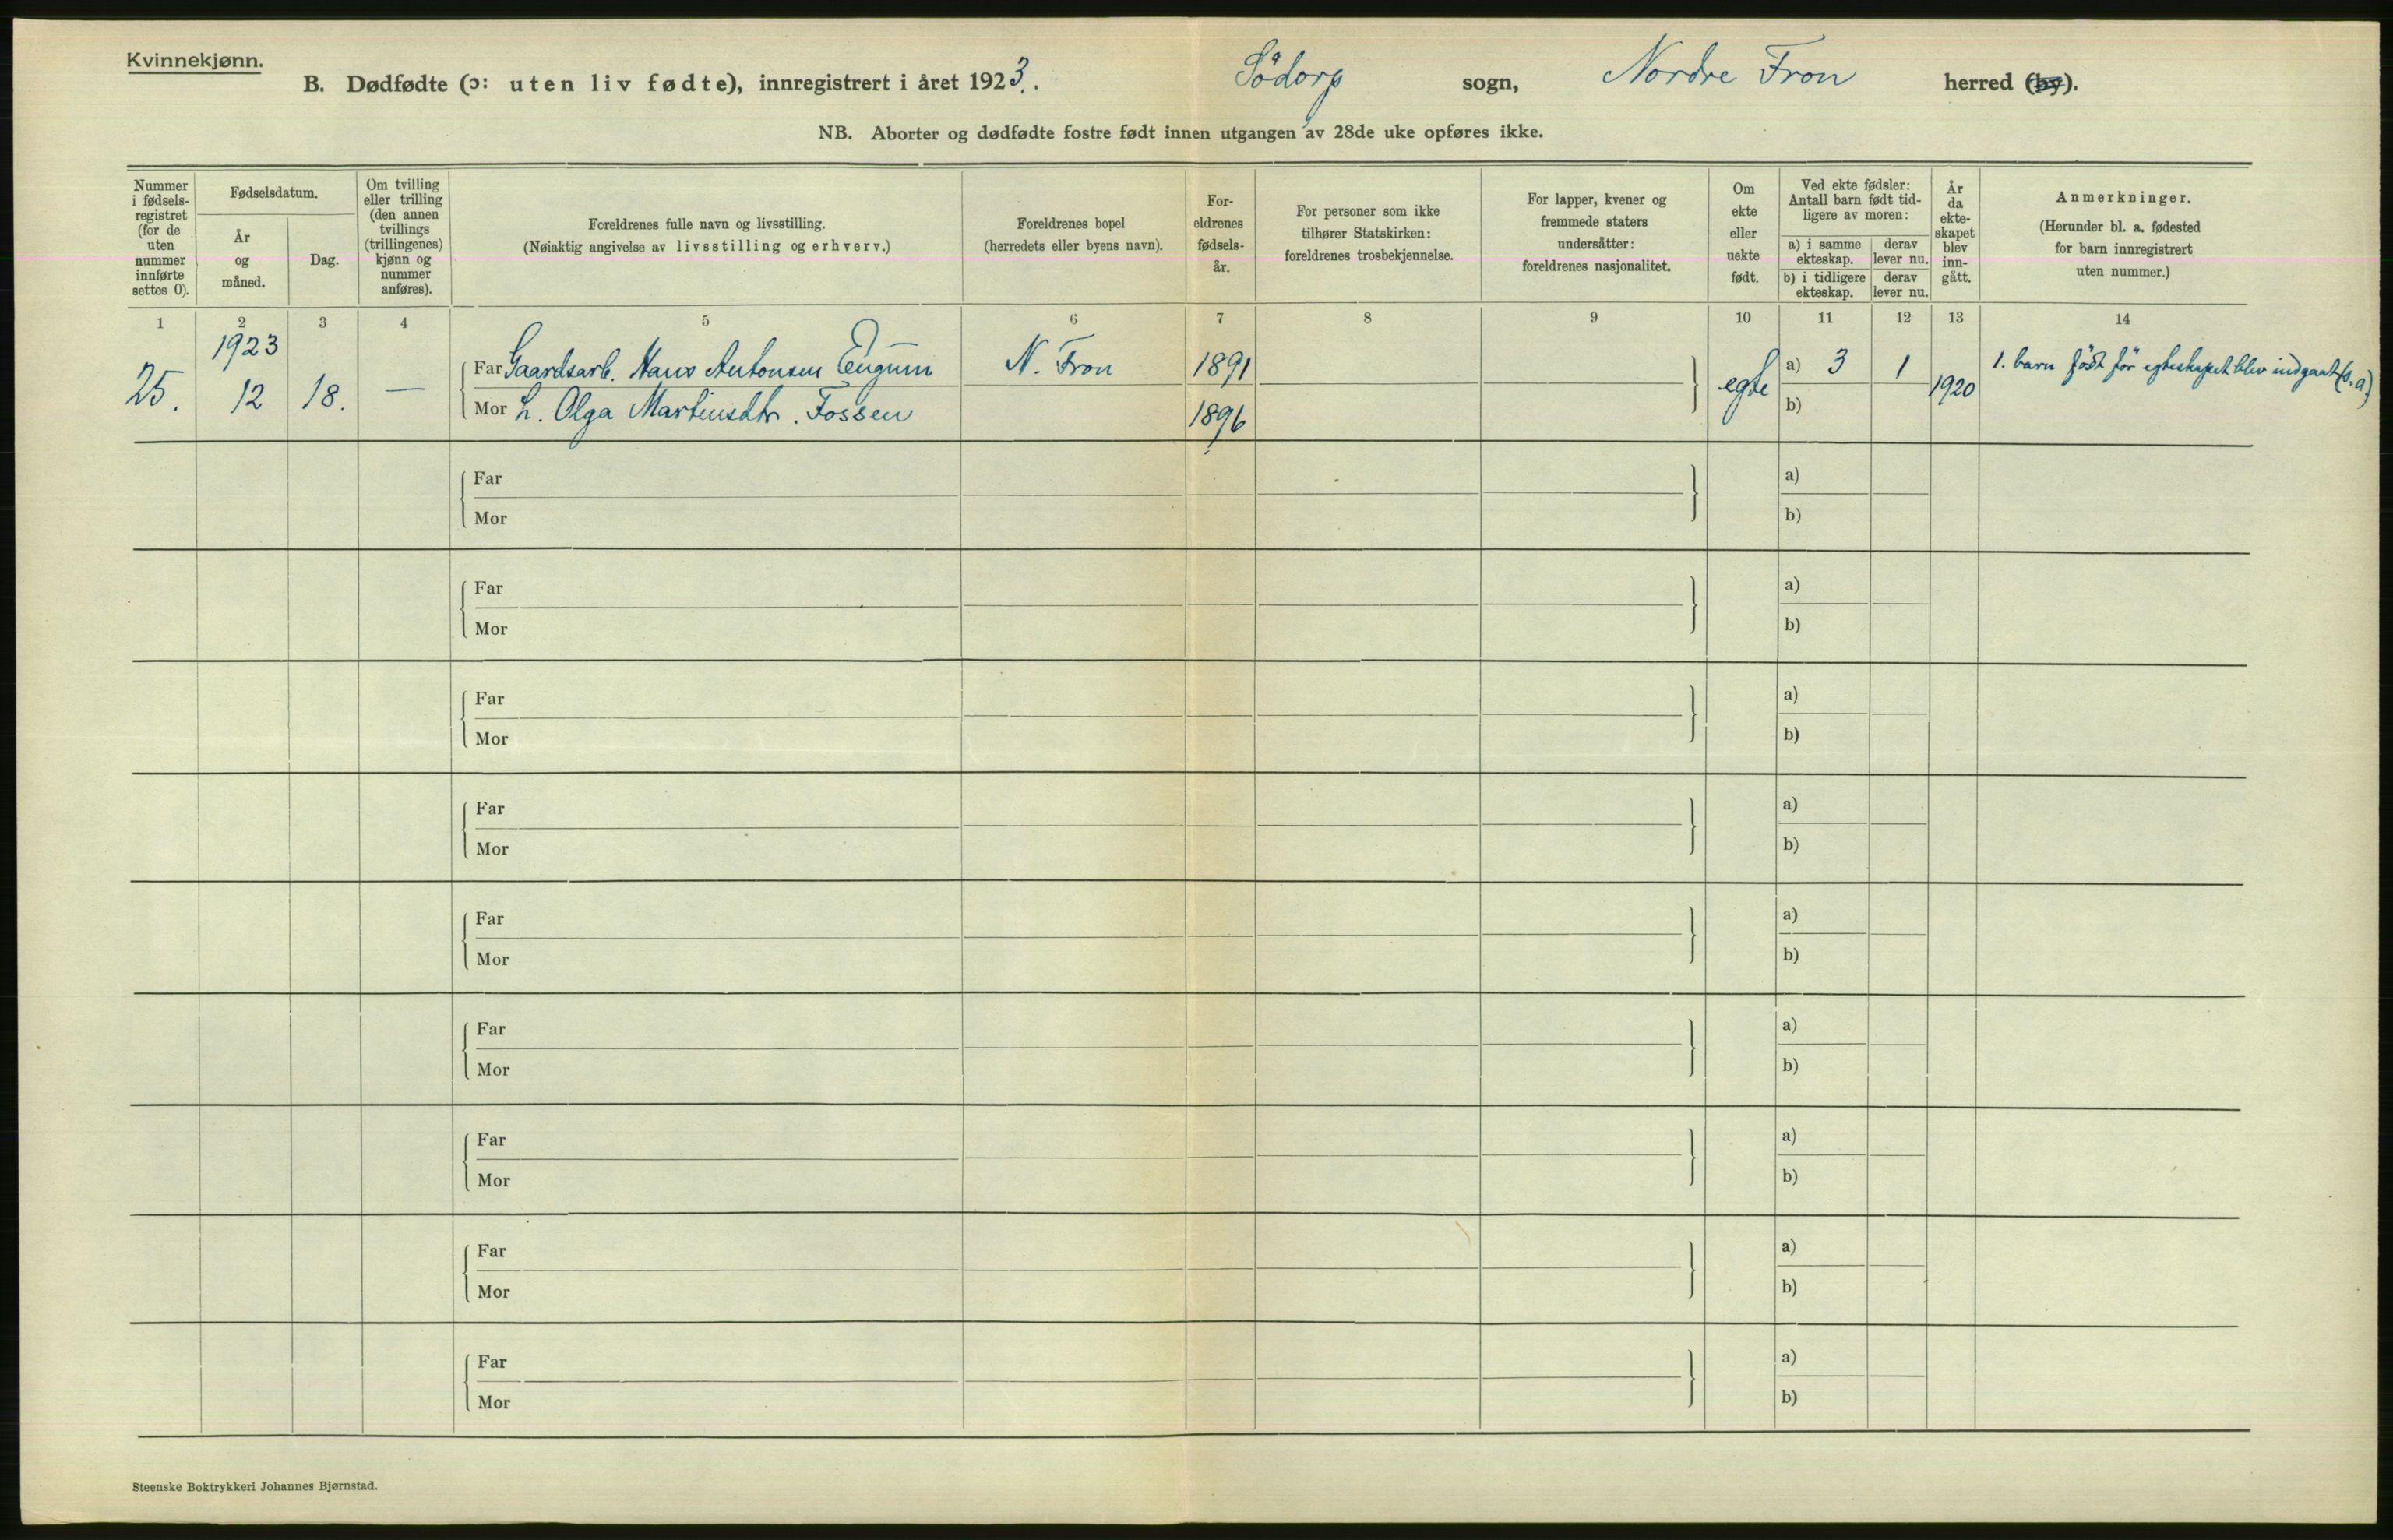 Kvinnekjønn.
B. Dødfødte (ɔ: uten liv fødte), innregistrert i året 1923. Södorp sogn, Nordre Fron herred (by).
NB. Aborter og dødfødte fostre født innen utgangen av 28de uke opføres ikke.
Nummer
i fødsels-
registret
(for de
uten
nummer
innførte
settes 0).
Fødselsdatum.
År
og
måned.
Dag.
Om tvilling
eller trilling
(den annen
tvillings
(trillingenes)
kjønn og
nummer
anføres).
Foreldrenes fulle navn og livsstilling.
(Nøiaktig angivelse av livsstilling og erhverv.)
Foreldrenes bopel
(herredets eller byens navn).
For-
eldrenes
fødsels-
år.
For personer som ikke
tilhører Statskirken:
foreldrenes trosbekjennelse.
For lapper, kvener og
fremmede staters
undersåtter:
foreldrenes nasjonalitet.
Om
ekte
eller
uekte
født.
Ved ekte fødsler:
Antall barn født tid-
ligere av moren:
a) i samme
ekteskap.
derav
lever nu.
b) i tidligere
ekteskap.
derav
lever nu.
År
da
ekte-
skapet
blev
inn-
gått.
Anmerkninger.
(Herunder bl. a. fødested
for barn innregistrert
uten nummer.)
1 2 3 4 5 6 7 8 9 10 11 12 13 14
1923
25. 12 18. —
Far Gaardsarb. Hans Antonsen Engum N. Fron 1891
Mor h. Olga Martinsdtr. Fossen 1896
egte a) 3 1 1920
b)
1. barn född för egteskapet blev indgaat (s. a.)
Far a)
Mor b)
Far a)
Mor b)
Far a)
Mor b)
Far a)
Mor b)
Far a)
Mor b)
Far a)
Mor b)
Far a)
Mor b)
Far a)
Mor b)
Far a)
Mor b)
Steenske Boktrykkeri Johannes Bjørnstad.